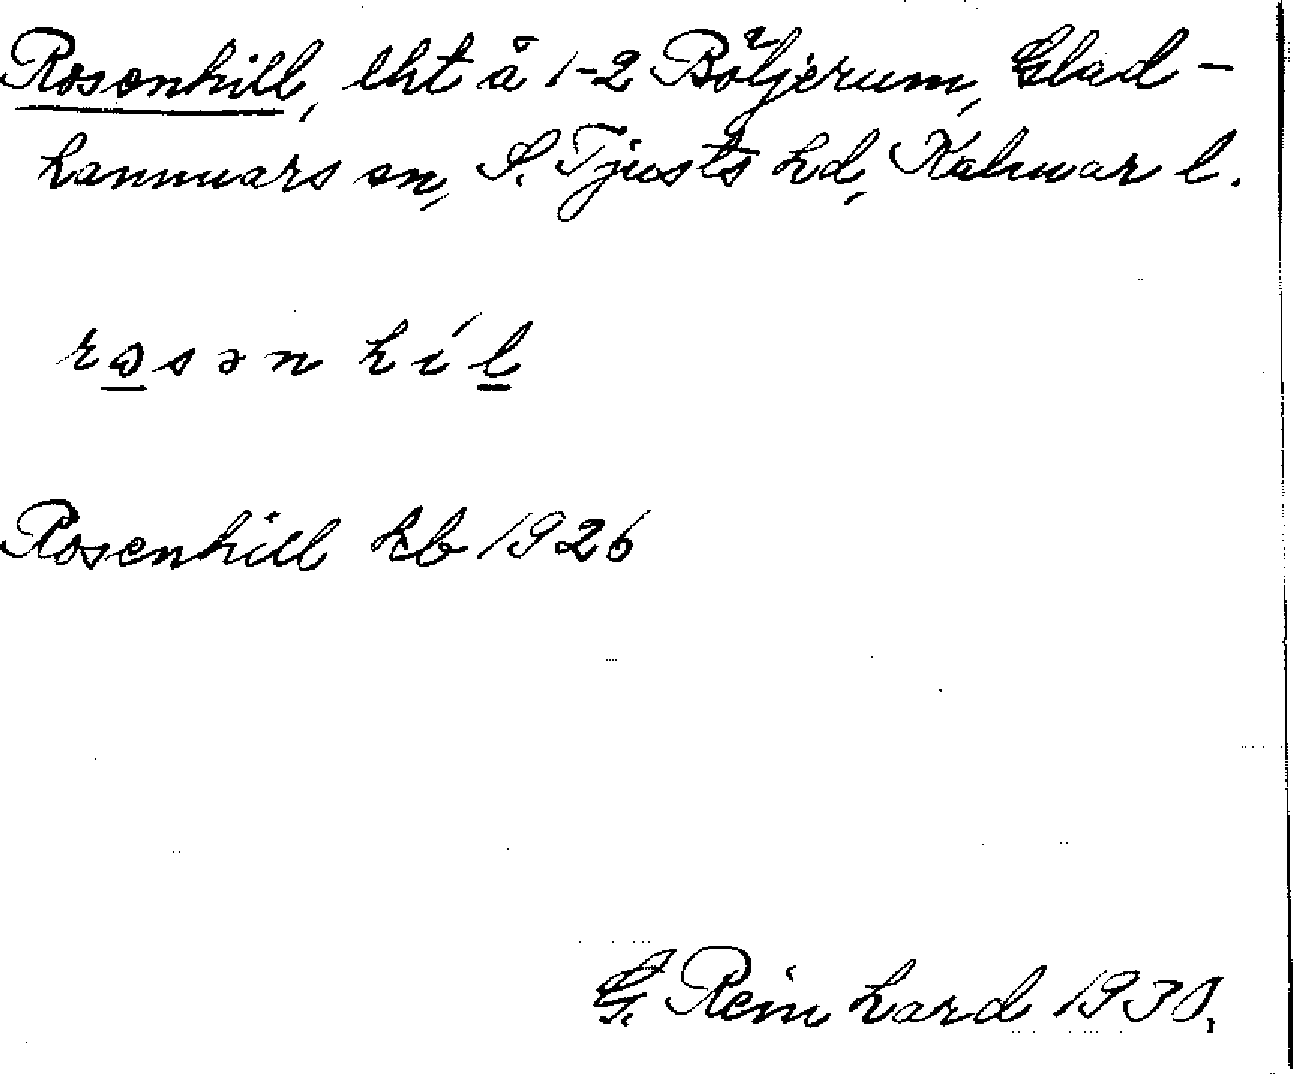 Rosenhill, lht å 1-2 Böljerum, Glad-
hammars sn, S. Tjusts hd, Kalmar l.
rosən híl
Rosenhill kb 1926
G. Reinhard 1930.